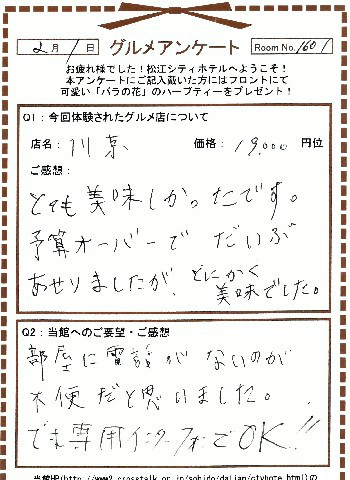 2月1日 グルメアンケート Room No. 1601
お疲れ様でした！松江シティホテルへようこそ！
本アンケートにご記入戴いた方にはフロントにて
可愛い「バラの花」のハーブティーをプレゼント！
Q1：今回体験されたグルメ店について
店名：川京 価格：19,000 円位
ご感想：
とても美味しかったです。
予算オーバーでだいぶ
あせりましたが、とにかく
美味でした。
Q2：当館へのご要望・ご感想
部屋に電話がないのが
不便だと思いました。
でも専用インターフォンでOK!!
当館HP(http://www2.crosstalk.or.jp/sobido/daijan/ctyhote.html)の